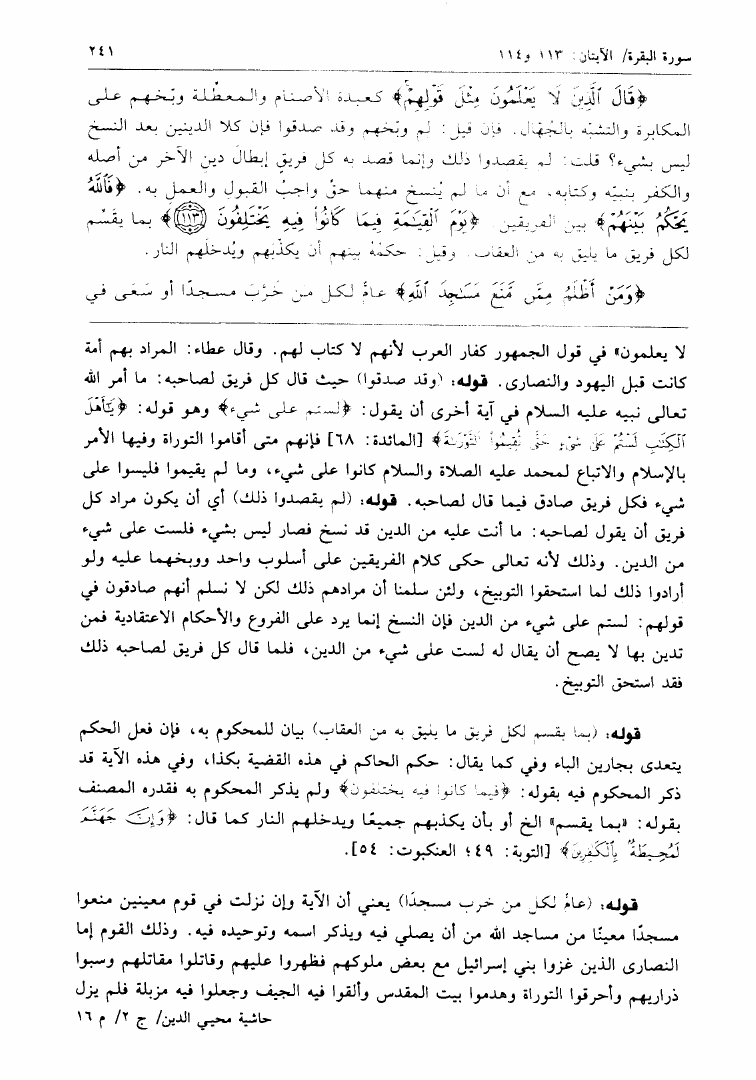 سورة البقرة/ الآيتان: ١١٣ و١١٤
٢٤١
﴿قَالَ ٱلَّذِينَ لَا يَعْلَمُونَ مِثْلَ قَوْلِهِمْ﴾ كعبدة الأصنام والمعطلة وبّخهم على
المكابرة والتشبّه بالجُهّال. فإن قيل: لم وبّخهم وقد صدقوا فإن كلا الدينين بعد النسخ
ليس بشيء؟ قلت: لم يقصدوا ذلك وإنما قصد به كل فريق إبطالَ دين الآخر من أصله
والكفر بنبيّه وكتابه، مع أن ما لم يُنسخ منهما حقٌ واجبُ القبول والعمل به. ﴿فَٱللَّهُ
يَحْكُمُ بَيْنَهُمْ﴾ بين الفريقين ﴿يَوْمَ ٱلْقِيَٰمَةِ فِيمَا كَانُوا۟ فِيهِ يَخْتَلِفُونَ ﴿١١٣﴾﴾ بما يقسّم
لكل فريق ما يليق به من العقاب. وقيل: حكمُهُ بينهم أن يكذّبهم ويُدخلهم النار.
﴿وَمَنْ أَظْلَمُ مِمَّن مَّنَعَ مَسَٰجِدَ ٱللَّهِ﴾ عامٌ لكل من خرّبَ مسجدًا أو سَعَى في
لا يعلمون» في قول الجمهور كفار العرب لأنهم لا كتاب لهم. وقال عطاء: المراد بهم أمة
كانت قبل اليهود والنصارى. قوله: (وقد صدقوا) حيث قال كل فريق لصاحبه: ما أمر الله
تعالى نبيه عليه السلام في آية أخرى أن يقول: ﴿لستم على شيء﴾ وهو قوله: ﴿يَٰٓأَهْلَ
ٱلْكِتَٰبِ لَسْتُمْ عَلَىٰ شَىْءٍ حَتَّىٰ تُقِيمُوا۟ ٱلتَّوْرَىٰةَ﴾ [المائدة: ٦٨] فإنهم متى أقاموا التوراة وفيها الأمر
بالإسلام والاتباع لمحمد عليه الصلاة والسلام كانوا على شيء، وما لم يقيموا فليسوا على
شيء فكل فريق صادق فيما قال لصاحبه. قوله: (لم يقصدوا ذلك) أي أن يكون مراد كل
فريق أن يقول لصاحبه: ما أنت عليه من الدين قد نسخ فصار ليس بشيء فلست على شيء
من الدين. وذلك لأنه تعالى حكى كلام الفريقين على أسلوب واحد ووبخهما عليه ولو
أرادوا ذلك لما استحقوا التوبيخ، ولئن سلمنا أن مرادهم ذلك لكن لا نسلم أنهم صادقون في
قولهم: لستم على شيء من الدين فإن النسخ إنما يرد على الفروع والأحكام الاعتقادية فمن
تدين بها لا يصح أن يقال له لست على شيء من الدين، فلما قال كل فريق لصاحبه ذلك
فقد استحق التوبيخ.
قوله: (بما يقسم لكل فريق ما يليق به من العقاب) بيان للمحكوم به، فإن فعل الحكم
يتعدى بجارين الباء وفي كما يقال: حكم الحاكم في هذه القضية بكذا، وفي هذه الآية قد
ذكر المحكوم فيه بقوله: ﴿فيما كانوا فيه يختلفون﴾ ولم يذكر المحكوم به فقدره المصنف
بقوله: «بما يقسم» الخ أو بأن يكذبهم جميعًا ويدخلهم النار كما قال: ﴿وَإِنَّ جَهَنَّمَ
لَمُحِيطَةٌۢ بِٱلْكَٰفِرِينَ﴾ [التوبة: ٤٩؛ العنكبوت: ٥٤].
قوله: (عامٌ لكل من خرب مسجدًا) يعني أن الآية وإن نزلت في قوم معينين منعوا
مسجدًا معينًا من مساجد الله من أن يصلي فيه ويذكر اسمه وتوحيده فيه. وذلك القوم إما
النصارى الذين غزوا بني إسرائيل مع بعض ملوكهم فظهروا عليهم وقاتلوا مقاتلهم وسبوا
ذراريهم وأحرقوا التوراة وهدموا بيت المقدس وألقوا فيه الجيف وجعلوا فيه مزبلة فلم يزل
حاشية محيي الدين/ ج ٢/ م ١٦